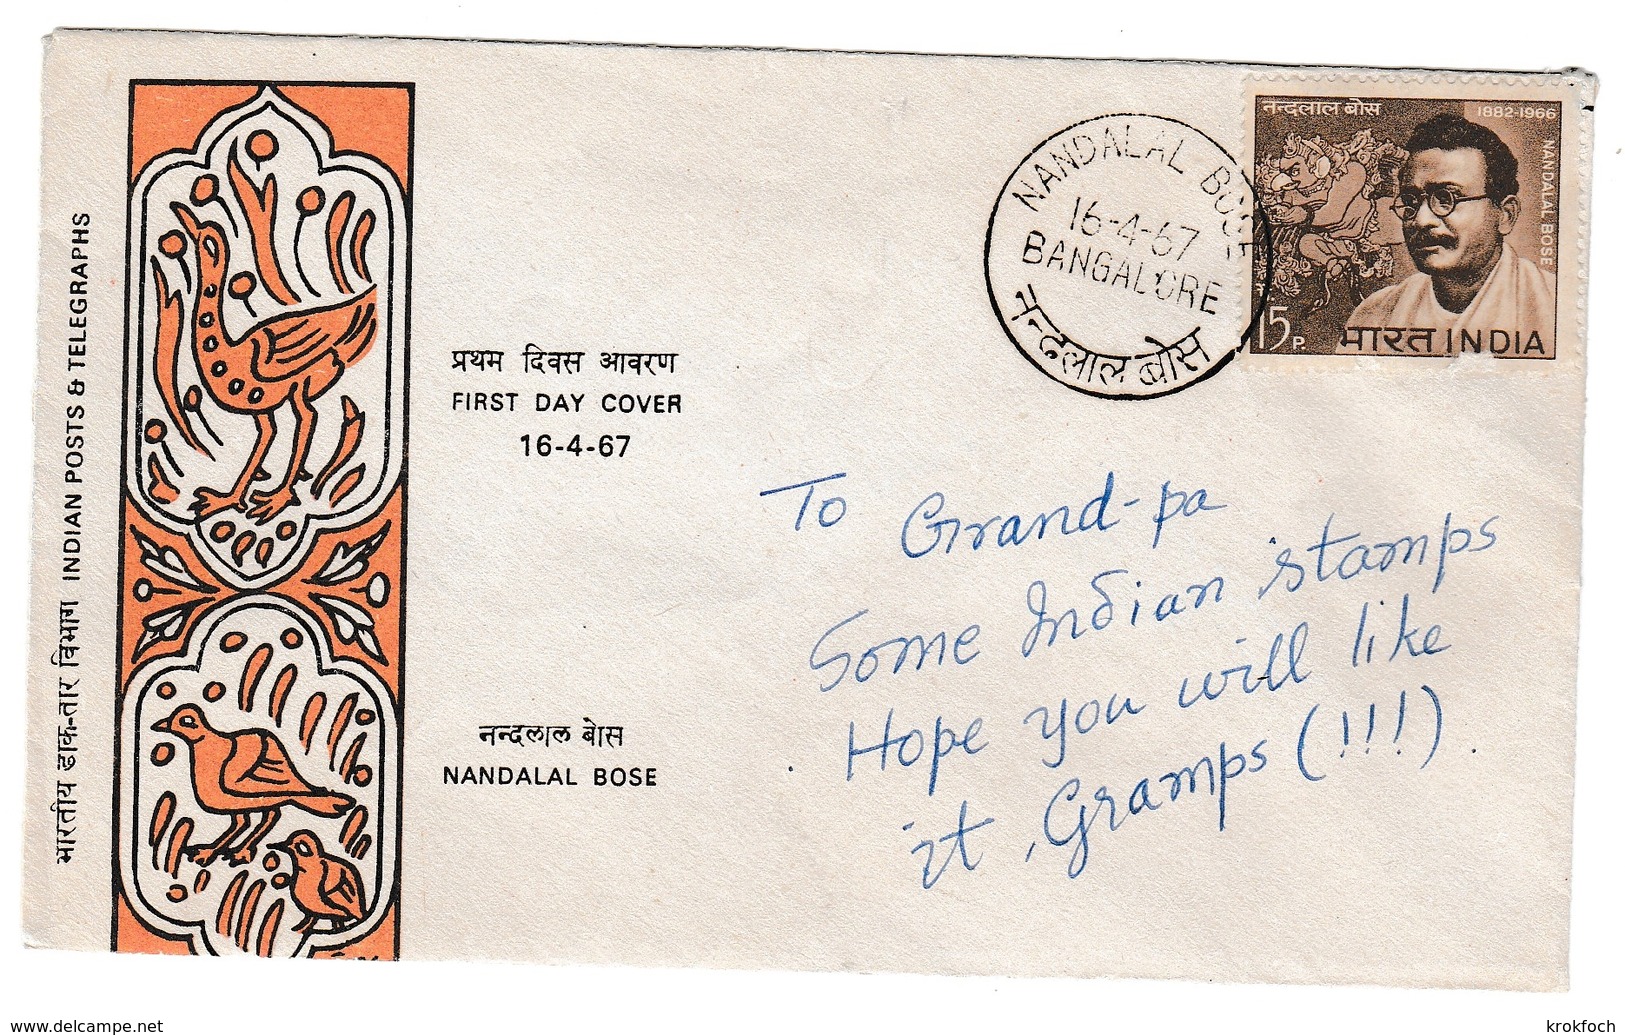 भारतीय डाक-तार विभाग INDIAN POSTS & TELEGRAPHS
प्रथम दिवस आवरण
FIRST DAY COVER
16-4-67
नन्दलाल बोस
NANDALAL BOSE
NANDALAL BOSE
16-4-67
BANGALORE
नन्दलाल बोस
नन्दलाल बोस
1882-1966
NANDALAL BOSE
15P.
भारत INDIA
To Grand-pa
Some Indian stamps
Hope you will like
it, Gramps (!!!).
www.delcampe.net
krokfoch